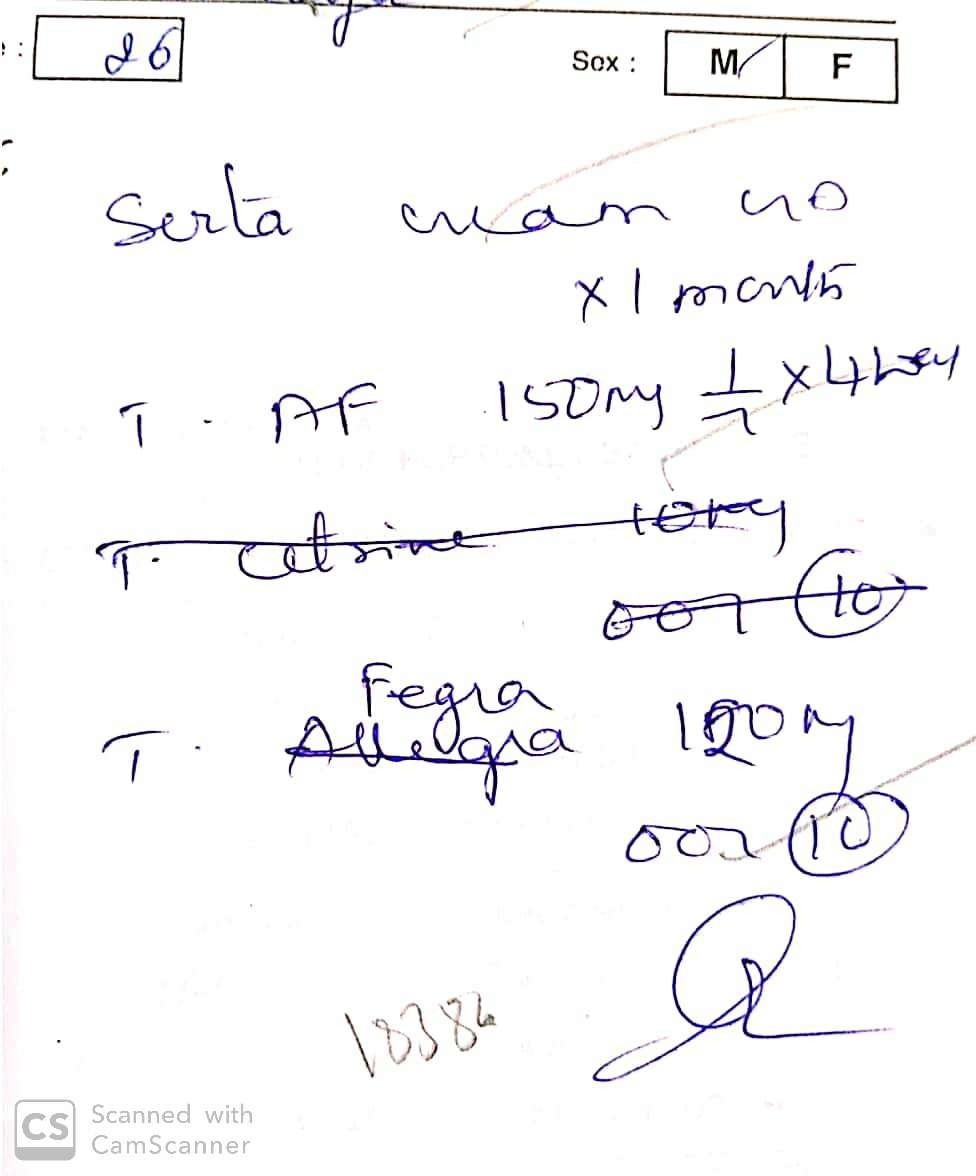 : 26 Sex : M F
Serta cream
x 1 month
T. AF 150mg 1/7 x 4
T. Cetrizine 10mg
001 10
Fegra
T. Allegra 120mg
001 10
CS Scanned with
CamScanner